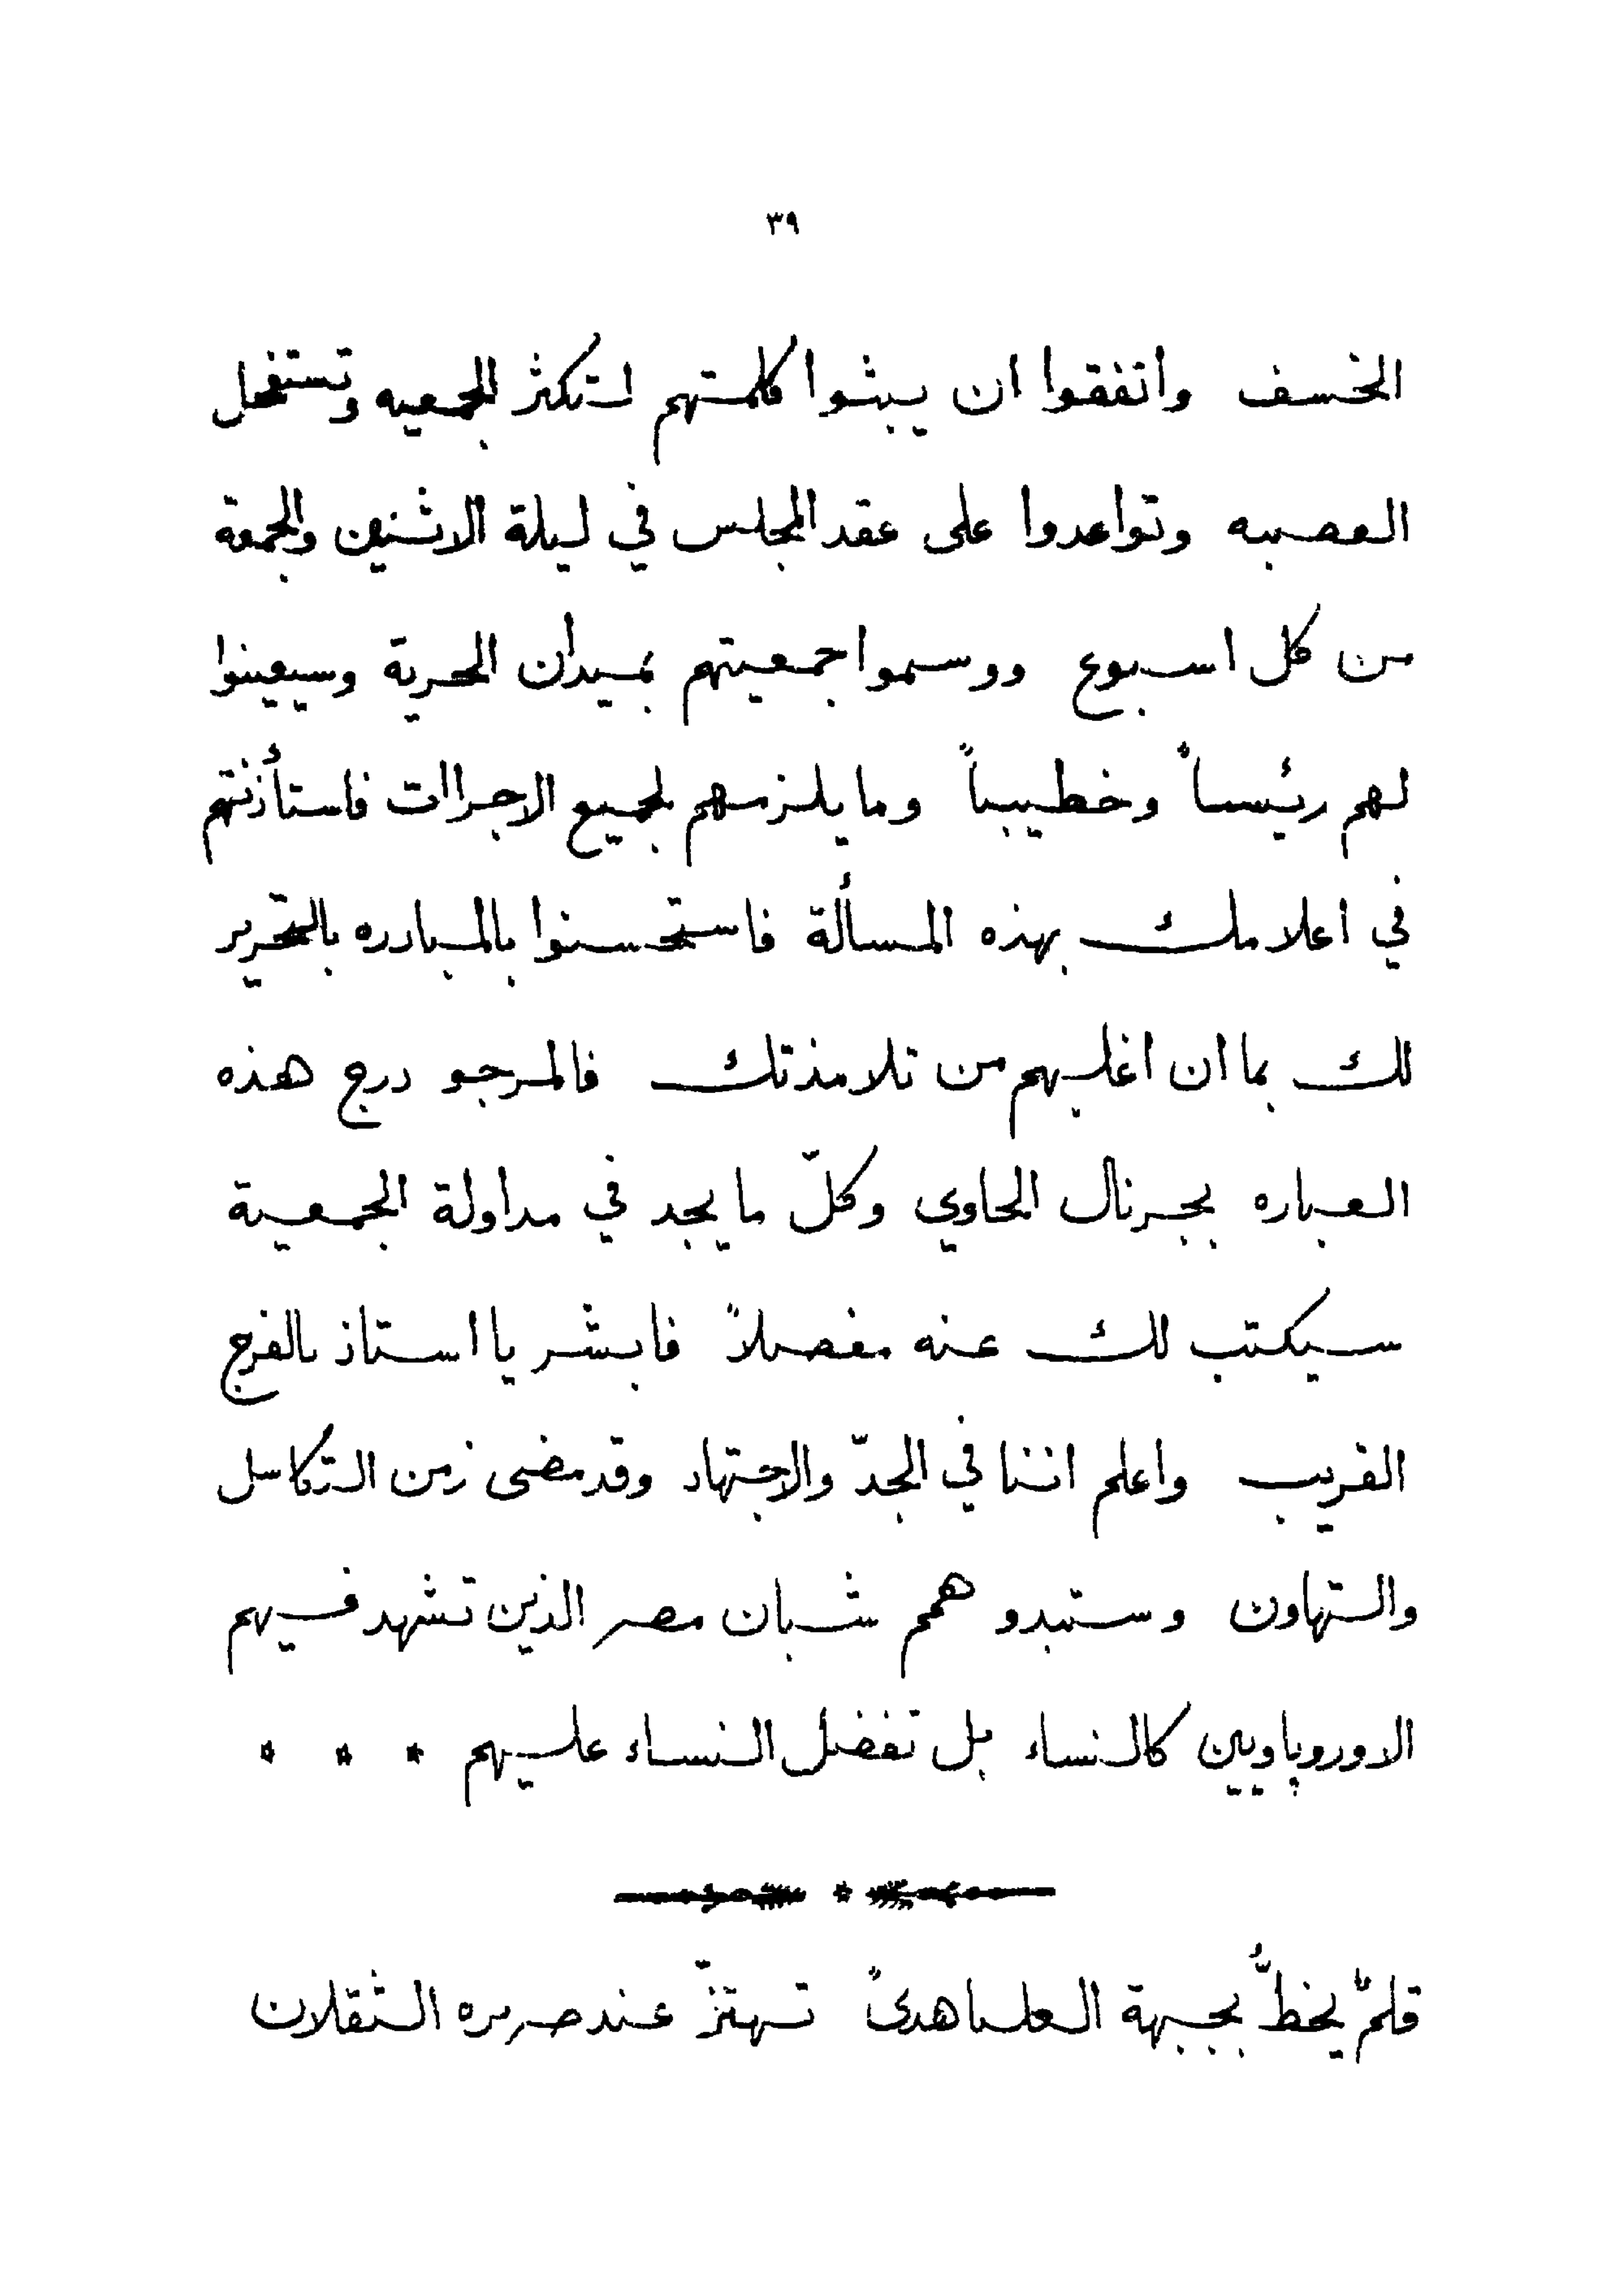 ٣٩
الخسف واتفقوا ان يبثوا كلمتهم لتكثر الجمعيه وتستفحل
العصبه وتواعدوا على عقد المجلس في ليلة الاثنين والجمعة
من كل اسبوع ووسموا جمعيتهم بميدان الحرية وسيعينوا
لهم رئيساً وخطيباً وما يلزمهم لجميع الاجراات فاستأذنتهم
في اعلامك بهذه المسألة فاستحسنوا بالمبادره بالتحرير
لك بما ان اغلبهم من تلامذتك فالمرجو درج هذه
العباره بجرنال الحاوي وكلّ ما يجد في مداولة الجمعية
سيكتب لك عنه مفصلاً فابشر يا استاذ بالفرج
القريب واعلم اننا في الجدّ والاجتهاد وقد مضى زمن التكاسل
والتهاون وستبدو همم شبان مصر الذين تشهد فيهم
الاوروپاويين كالنساء بل تفضل النساء عليهم * * *
قلمٌ يخطُّ بجبهة العليا هدىً تهتزّ عند صريره الثقلان